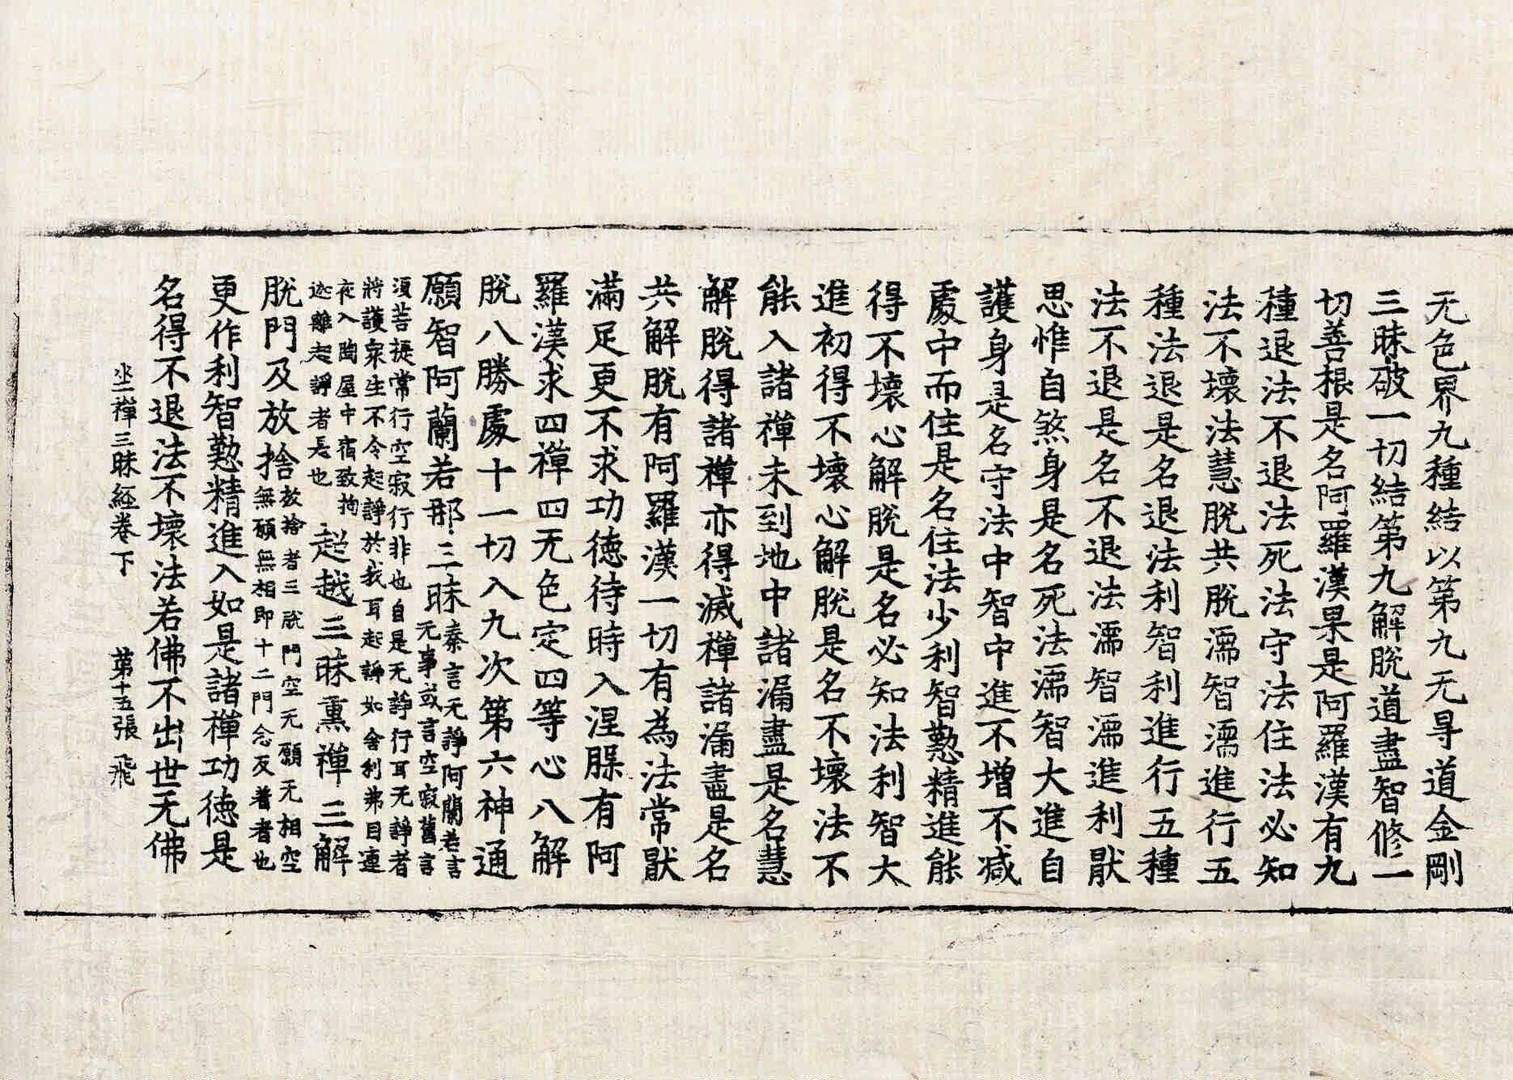 无色界九種結以第九无㝵道金剛
三昧破一切結第九解脫道盡智修一
切善根是名阿羅漢果是阿羅漢有九
種退法不退法死法守法住法必知
法不壞法慧脫共脫濡智濡進行五
種法退是名退法利智利進行五種
法不退是名不退法濡智濡進利猒
思惟自煞身是名死法濡智大進自
護身是名守法中智中進不增不減
處中而住是名住法少利智懃精進能
得不壞心解脫是名必知法利智大
進初得不壞心解脫是名不壞法不
能入諸禪未到地中諸漏盡是名慧
解脫得諸禪亦得滅禪諸漏盡是名
共解脫有阿羅漢一切有為法常猒
滿足更不求功德待時入涅槃有阿
羅漢求四禪四无色定四等心八解
脫八勝處十一切入九次第六神通
願智阿蘭若那三昧秦言无諍阿蘭若言
无事或言空寂舊言
須菩提常行空寂行非也自是无諍行耳无諍者
將護衆生不令起諍於我耳起諍如舍利弗目連
夜入陶屋中宿致拘
迦離起諍者是也 超越三昧熏禪三解
脫門及放捨放捨者三脫門空无願无相空
無願無相即十二門念反著者也
更作利智懃精進入如是諸禪功德是
名得不退法不壞法若佛不出世无佛
坐禪三昧經卷下 第十五張 飛